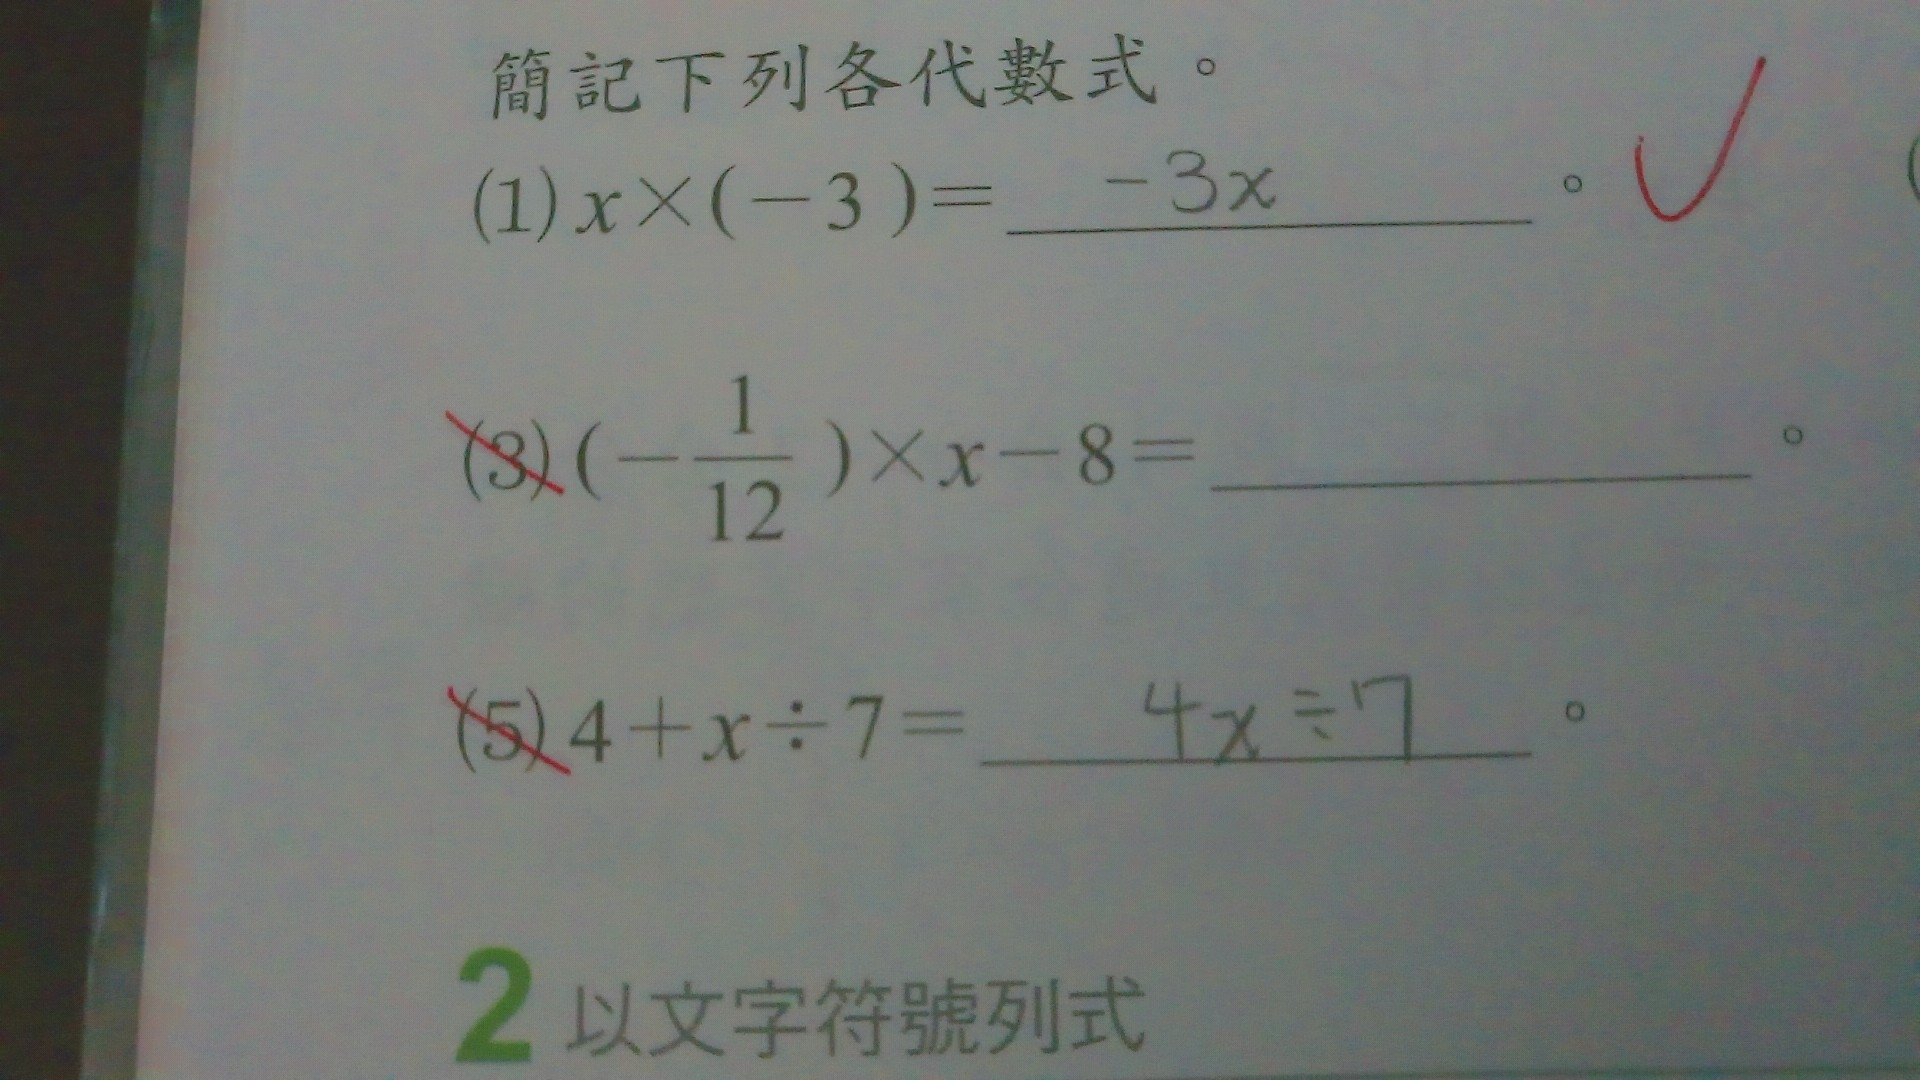 簡記下列各代數式。
(1) x×(−3)= −3x 。
(3) (−1/12)×x−8= 。
(5) 4+x÷7= 4x÷7 。
2 以文字符號列式